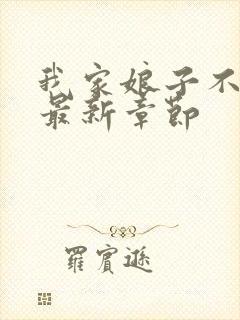 我家娘子不
最新章節
羅賓遜